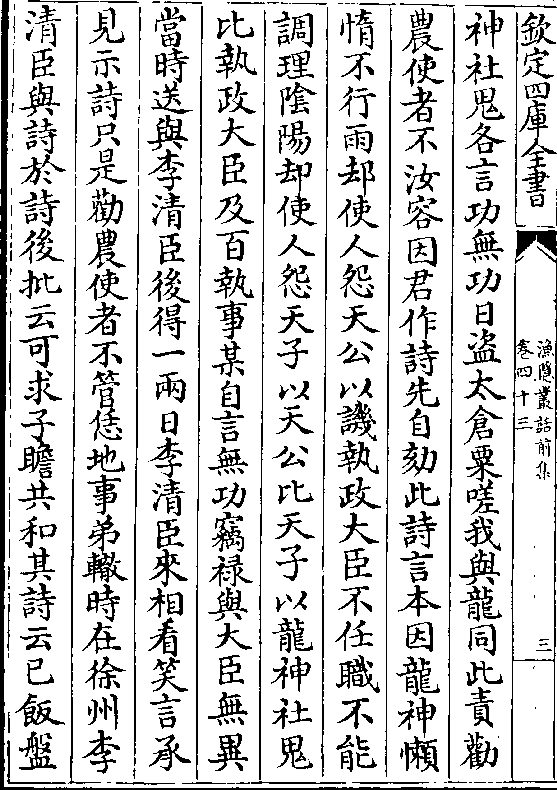 欽定四庫全書
漁隱叢話前集
卷四十三
三
神社鬼各言功無功日盜太倉粟嗟我與龍同此責勸
農使者不汝容因君作詩先自劾此詩言本因龍神懶
惰不行雨却使人怨天公以譏執政大臣不任職不能
調理陰陽却使人怨天子以天公比天子以龍神社鬼
比執政大臣及百執事某自言無功竊禄與大臣無異
當時送與李清臣後得一兩日李清臣來相看笑言承
見示詩只是勸農使者不管恁地事弟轍時在徐州李
清臣與詩於詩後批云可求子瞻共和其詩云已飯盤